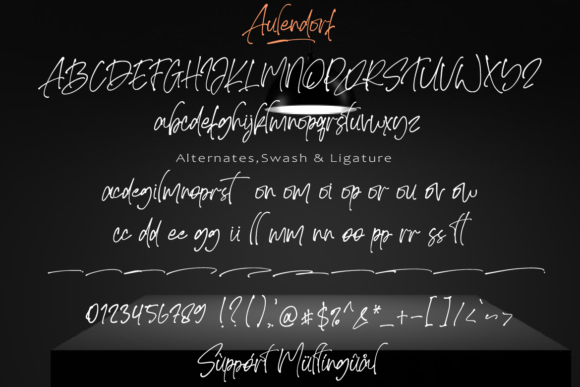 Aulendorf
ABCDEFGHIJKLMNOPQRSTUVWXYZ
abcdefghijklmnopqrstuvwxyz
Alternates,Swash & Ligature
acdegilmnoprst on om oi op or ou ov ow
cc dd ee gg ii ll mm nn oo pp rr ss tt
0123456789 !?(),;'@#$%^&*_+-[]/<~>
Süppórt Mültîngüål